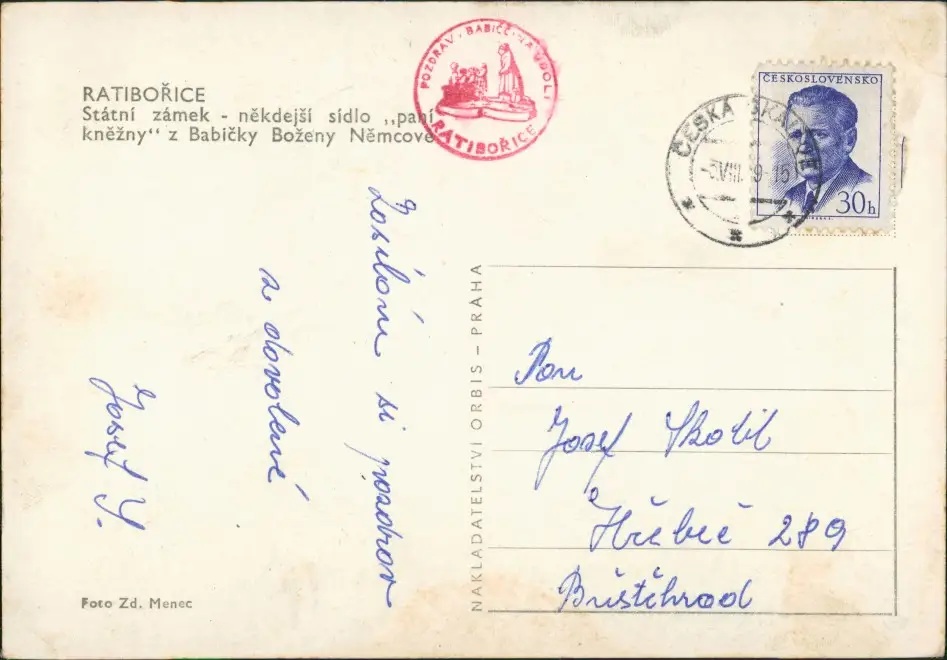 RATIBOŘICE
Státní zámek - někdejší sídlo „paní
kněžny" z Babičky Boženy Němcové
POZDRAV · BABIČČ · NA ÚDOLÍ
RATIBOŘICE
ČESKÁ SKALICE
ČESKOSLOVENSKO
30h
si pozdrav
z dovolené
Josef Y.
NAKLADATELSTVÍ ORBIS – PRAHA
Pan
Josef Skolil
Hřebeč 289
Buštěhrad
Foto Zd. Menec